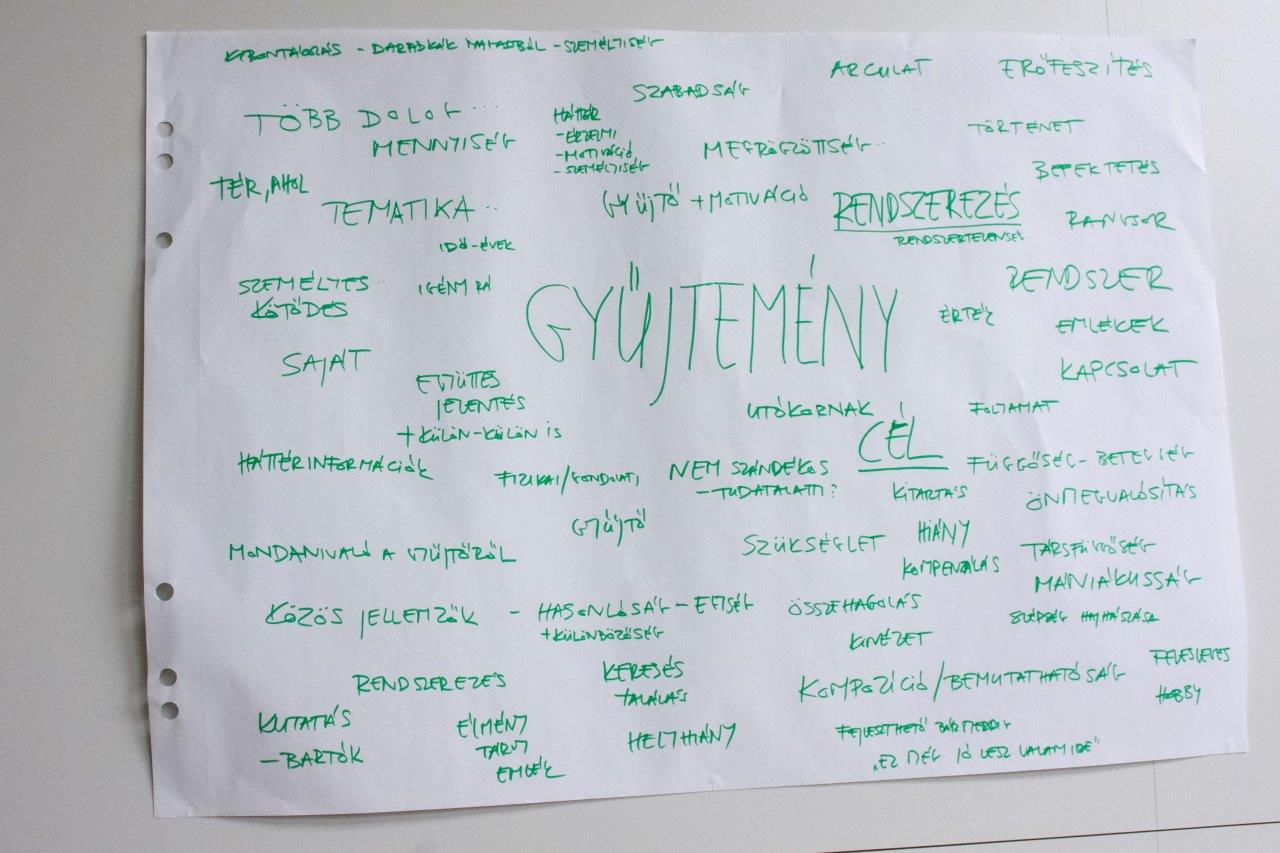 KIBONTAKOZÁS - DARABKÁK MAGADBÓL - SZEMÉLYISÉG
ARCULAT
ERŐFESZÍTÉS
SZABADSÁG
TÖBB DOLOG...
MENNYISÉG
HÁTTÉR
- ÉRZELMI
- MOTIVÁCIÓ
- SZEMÉLYISÉG
MEGRÖGZÖTTSÉG..
TÖRTÉNET
BEFEKTETÉS
TÉR, AHOL
TEMATIKA...
GYŰJTŐ + MOTIVÁCIÓ
RENDSZEREZÉS
RENDSZERTELENSÉG
RANGSOR
IDŐ-ÉVEK
SZEMÉLYES
KÖTŐDÉS
IGÉNY RÁ
GYŰJTEMÉNY
ÉRTÉK
RENDSZER
EMLÉKEK
SAJÁT
KAPCSOLAT
EGYÜTTES
JELENTÉS
+ KÜLÖN-KÜLÖN IS
UTÓKORNAK
FOLYAMAT
CÉL
HÁTTÉRINFORMÁCIÓK
FIZIKAI/GONDOLATI
NEM SZÁNDÉKOS
- TUDATALATTI?
FÜGGŐSÉG - BETEGSÉG
KITARTÁS
ÖNMEGVALÓSÍTÁS
GYŰJTŐ
MONDANIVALÓ A GYŰJTŐRŐL
SZÜKSÉGLET
HIÁNY
KOMPENZÁLÁS
TÁRSFÜGGŐSÉG
MÁNIÁKUSSÁG
KÖZÖS JELLEMZŐK - HASONLÓSÁG - EGYSÉG
+ KÜLÖNBÖZŐSÉG
ÖSSZEHAGOLÁS
SZÉPSÉG HAJHÁSZÁSA
KINÉZET
RENDSZEREZÉS
KERESÉS
TALÁLÁS
KOMPOZÍCIÓ/BEMUTATHATÓSÁG
FELESLEGES
HOBBY
KUTATÁS
- BARTÓK
ÉLMÉNY
TÁRGY
EMLÉK
HELYHIÁNY
FEJLESZTHETŐ BÁRMEDDIG
„EZ MÉG JÓ LESZ VALAMIRE"